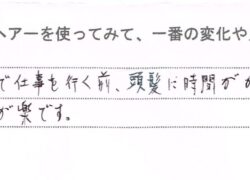 ヘアーを使ってみて、一番の変化や
で仕事を行く前、頭髪に時間が
が楽です。